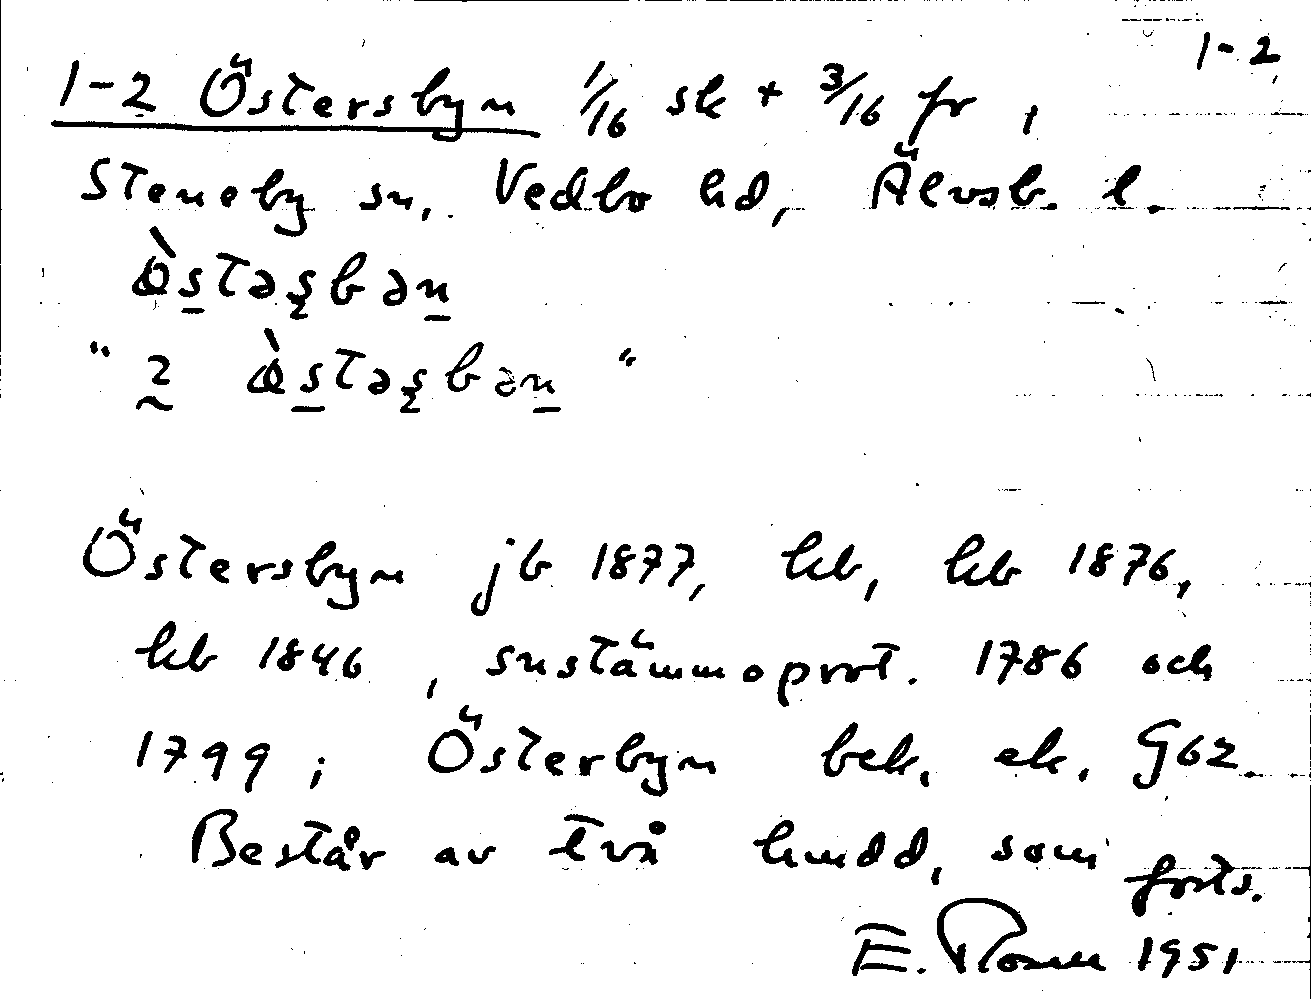 1-2
1-2 Östersbyn 1/16 sk + 3/16 fr,
Steneby sn, Vedbo hd, Älvsb. l.
Östersbyn jb 1877, kb, hb 1876,
hb 1846, snstämmoprot. 1786 och
1799; Österbyn bek. ek. G62.
Består av två hmdd, som forts.
E. 1951